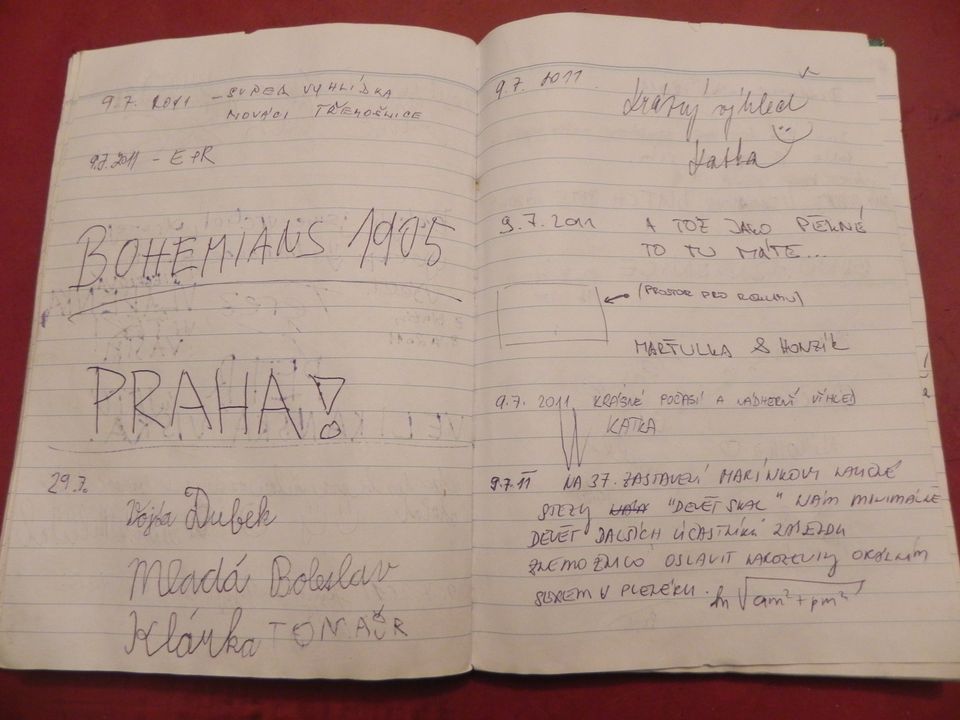 9.7. 2011 - SUPER VYHLÍDKA
NOVÁCI TŘEMOŠNICE
9.7.2011 - EPR
BOHEMIANS 1905
PRAHA!
29.7.
Vojta Dubek
Mladá Boleslav
Klárka
9.7. 2011
Krásný výhled
Katka
9.7.2011 A TOŽ JAKO PĚKNÉ
TO TU MÁTE...
(PROSTOR PRO ROLNIČKU)
MARŤULKA & HONZÍK
9.7. 2011 KRÁSNÉ POČASÍ A NÁDHERNÝ VÝHLED
KATKA
9.7.11 NA 37. ZASTAVENÍ MARÍNKOVY NAUČNÉ
STEZKY "DEVĚT SKAL" NÁM MINIMÁLNĚ
DEVĚT DALŠÍCH ÚČASTNÍKŮ ZÁJEZDU
ZNEMOŽNILO OSLAVIT NAROZENINY ORÁLNÍM
SEXEM V PLENÉRU. ln √am²+pm²